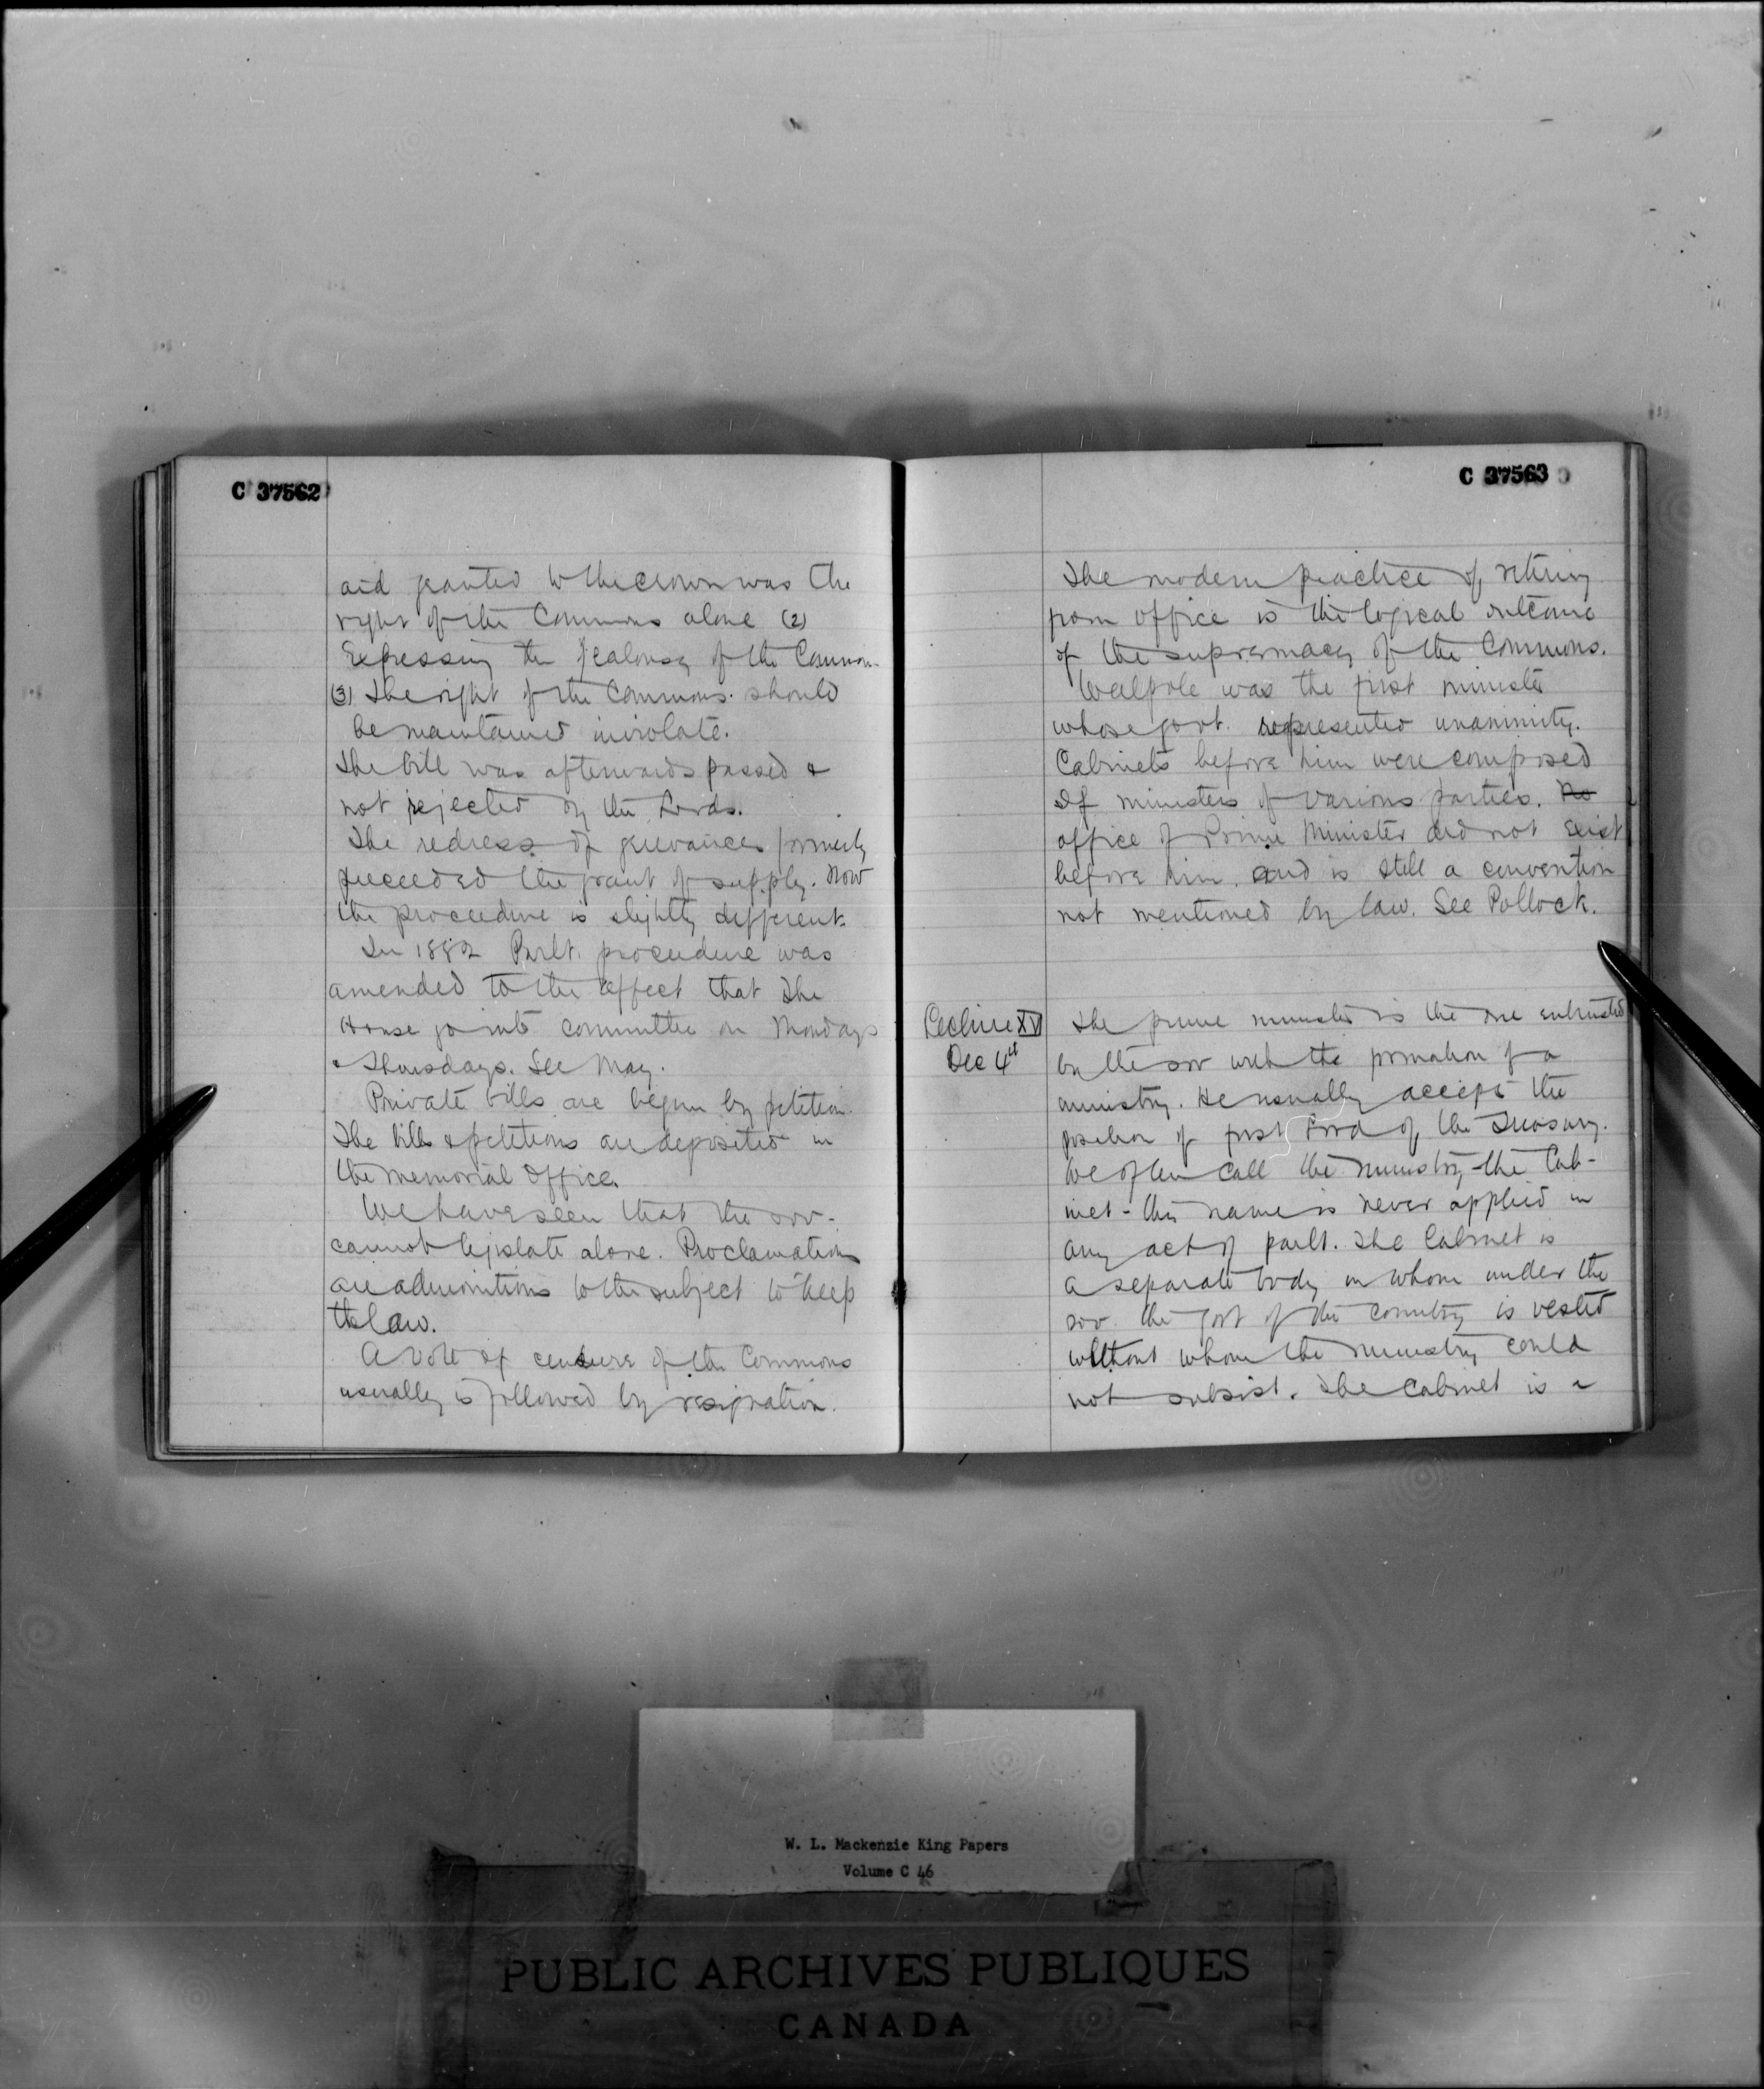 C 37562
aid granted to the crown was the
right of the Commons alone (2)
Expressing the jealousy of the Common-
(3) The right of the Commons should
be maintained inviolate.
The bill was afterwards passed &
not rejected by the Lords.
The redress of grievances formerly
preceeded the grant of supply. Now
the procedure is slightly different.
In 1882 Parlt. procedure was
amended to the effect that the
House go into committee on Mondays
& Thursdays. See May.
Private bills are begun by petition.
The bills & petitions are deposited in
the Memorial Office.
We have seen that the sov-
cannot legislate alone. Proclamations
are admonitions to the subject to keep
the law.
A vote of censure of the Commons
usually is followed by resignation.
C 37563
The modern practice of retiring
from office is the logical outcome
of the supremacy of the Commons.
Walpole was the first minister
whose govt. represented unanimity.
Cabinets before him were composed
of ministers of various parties. No
office of Prime Minister did not exist
before him. and is still a convention
not mentioned by law. See Pollock.
Lecture XV
Dec 4th
The prime minister is the one entrusted
by the sov with the formation of a
ministry. He usually accepts the
position of first Lord of the Treasury.
We often call the ministry the Cab-
inet - this name is never applied in
any act of parlt. The Cabinet is
a separate body in whom under the
sov. the govt of the country is vested
without whom the ministry could
not subsist. The Cabinet is a
W. L. Mackenzie King Papers
Volume C 46
PUBLIC ARCHIVES PUBLIQUES
CANADA